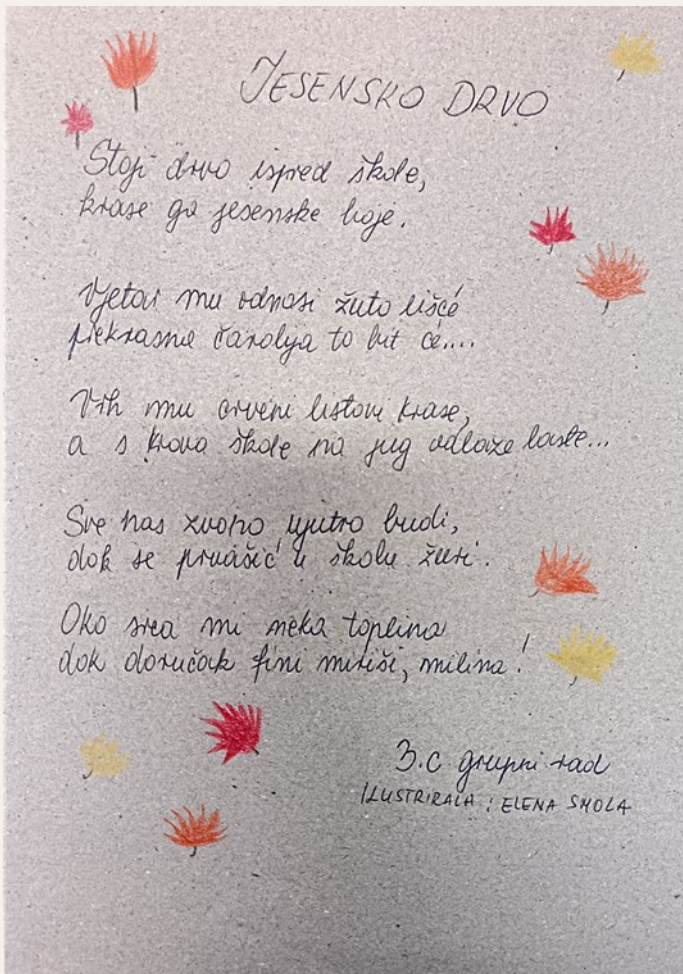 JESENSKO DRVO
Stoji drvo ispred škole,
krase ga jesenske boje.
Vjetar mu odnosi žuto lišće
prekrasna čarolija to bit će....
Vrh mu crveni listovi krase,
a s krova škole na jug odlaze laste...
Sve nas zvono ujutro budi,
dok se prvašić u školu žuri.
Oko srca mi neka toplina
dok doručak fini miriši, milina!
3.c grupni rad
ILUSTRIRALA: ELENA SMOLA